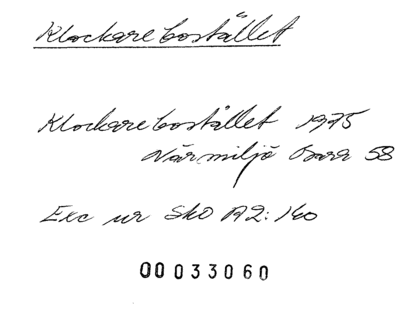 Klockarebostället
Klockarebostället 1975
Närmiljö Bara 58
Exc ur Sko A2:140
00033060